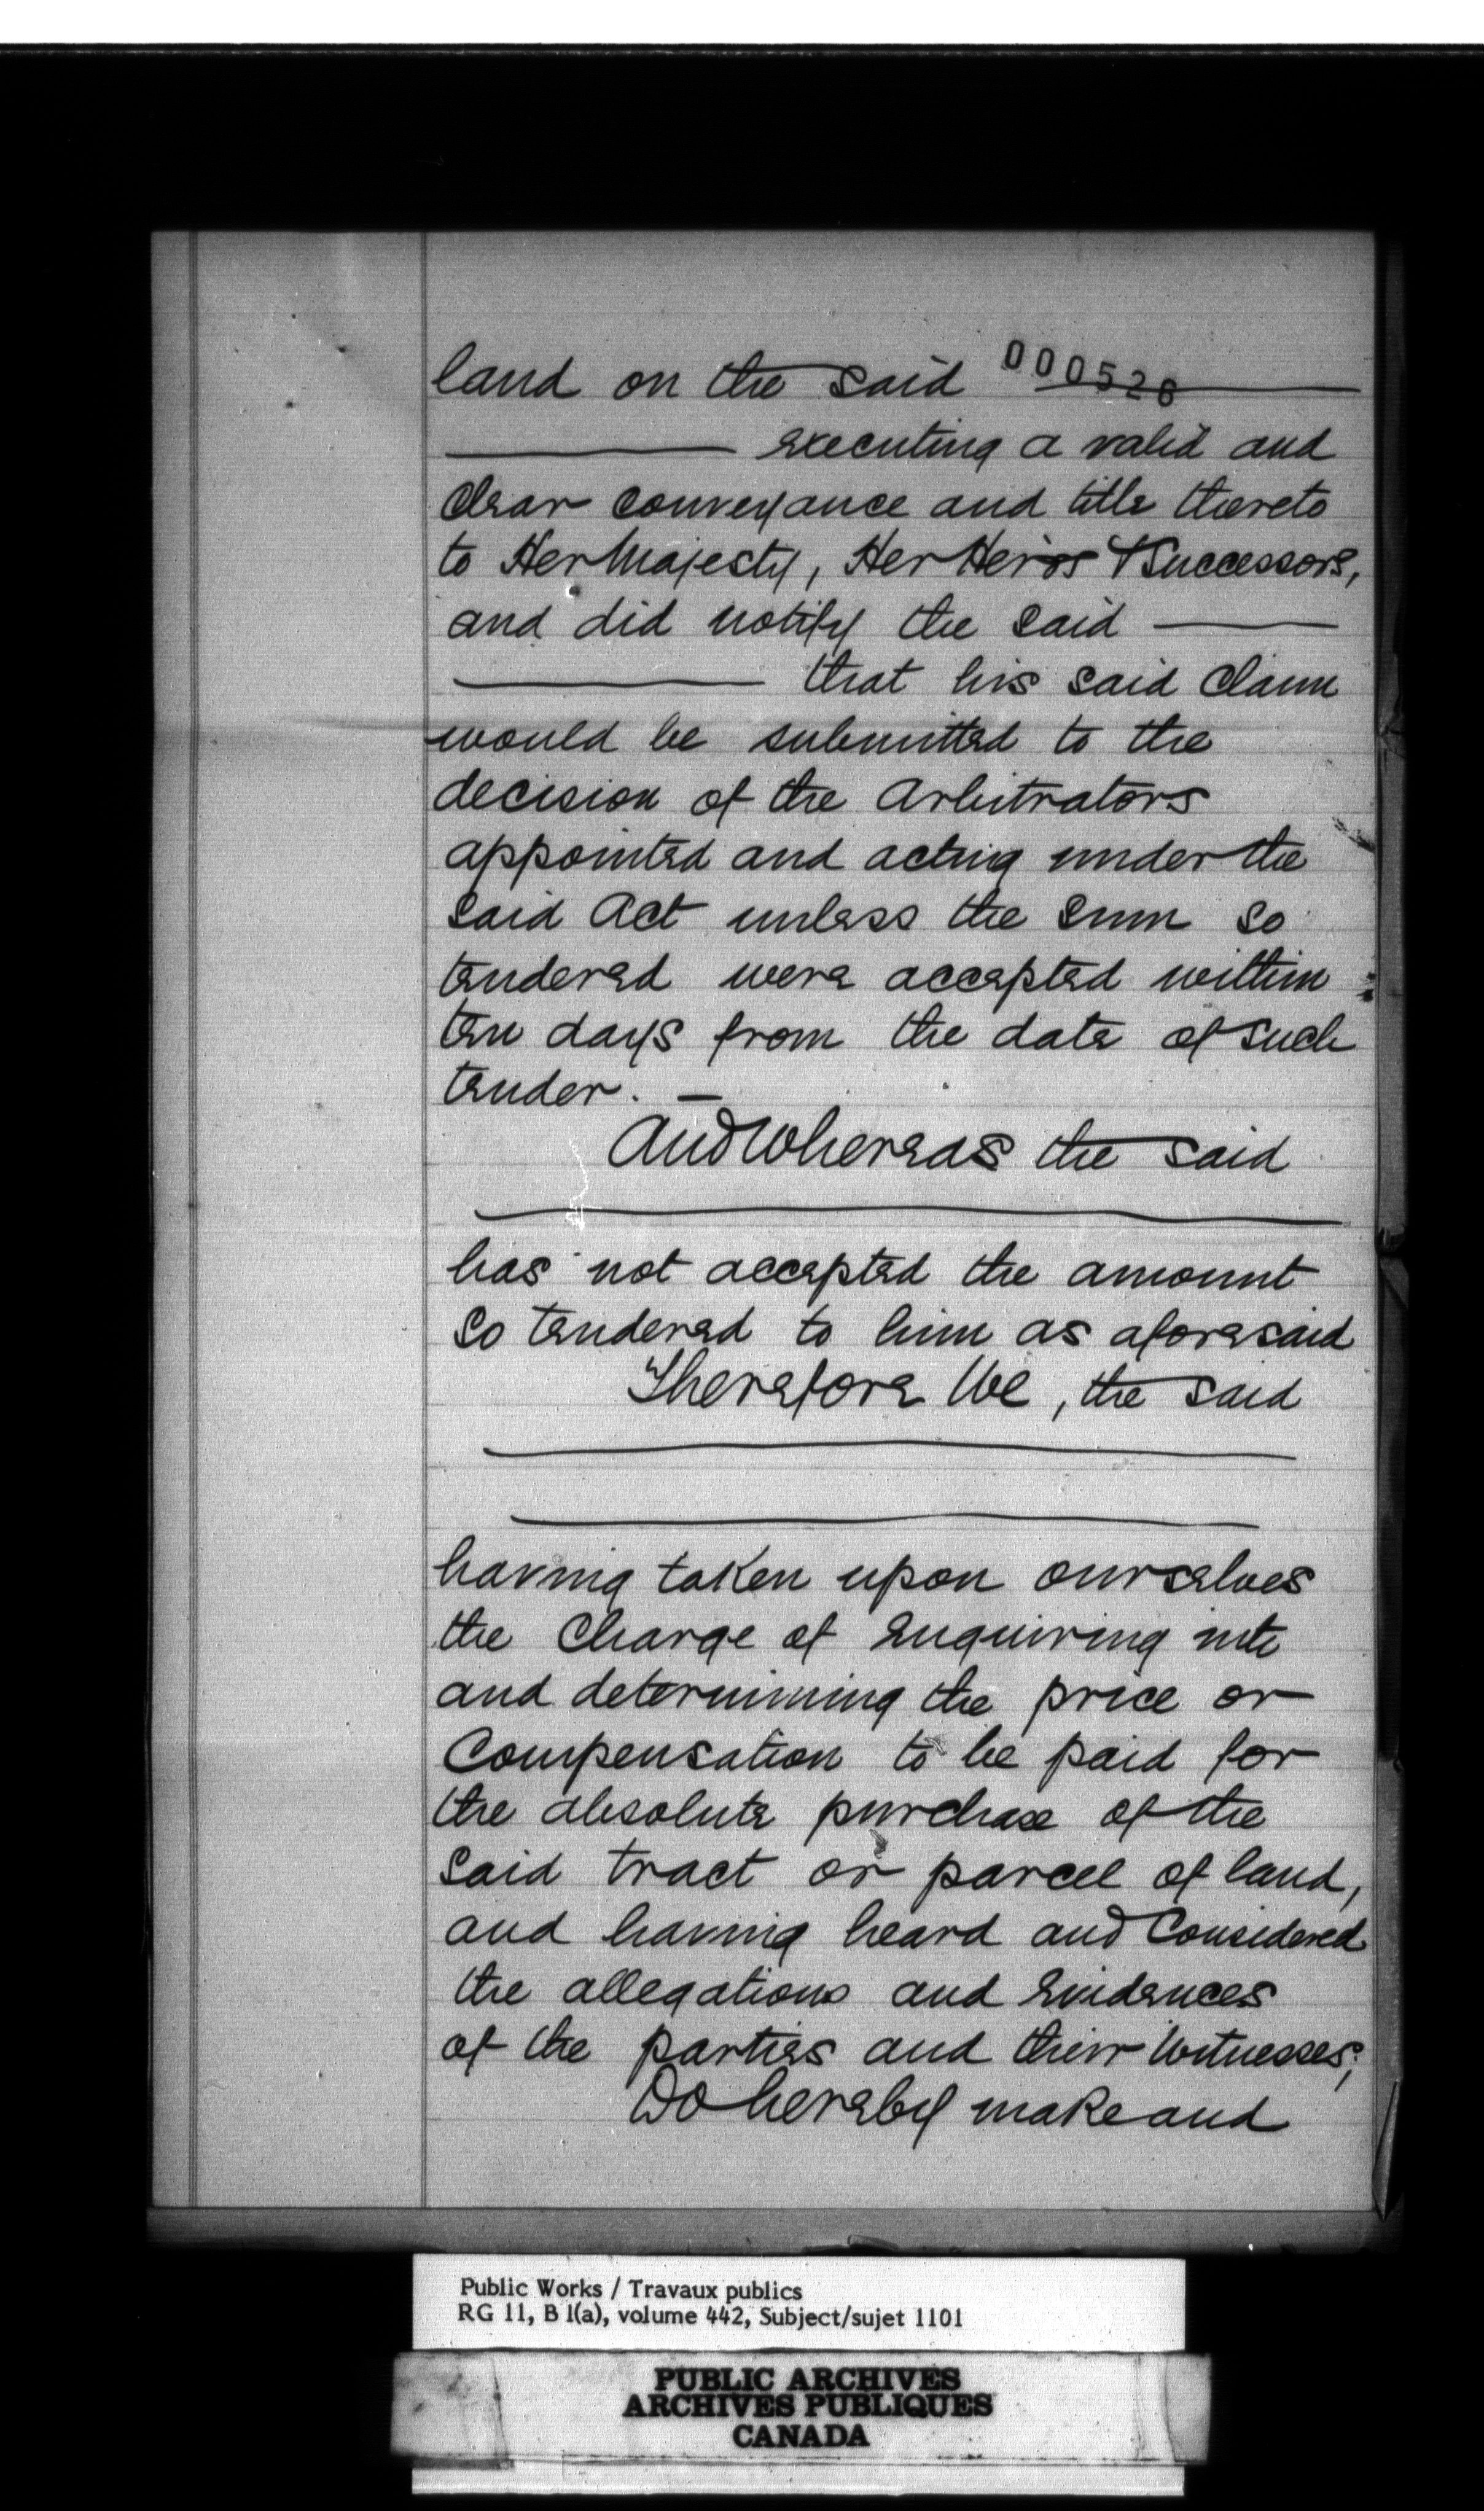 land on the said 000526
executing a valid and
clear conveyance and title thereto
to Her Majesty, Her Heirs & Successors,
and did notify the said
that his said claim
would be submitted to the
decision of the Arbitrators
appointed and acting under the
said Act unless the sum so
tendered were accepted within
ten days from the date of such
tender. —
And Whereas the said
has not accepted the amount
so tendered to him as aforesaid
Therefore We, the said
having taken upon ourselves
the Charge of enquiring into
and determining the price or
Compensation to be paid for
the absolute purchase of the
said tract or parcel of land,
and having heard and Considered
the allegations and evidences
of the parties and their Witnesses;
Do hereby make and
Public Works / Travaux publics
RG 11, B 1(a), volume 442, Subject/sujet 1101
PUBLIC ARCHIVES
ARCHIVES PUBLIQUES
CANADA